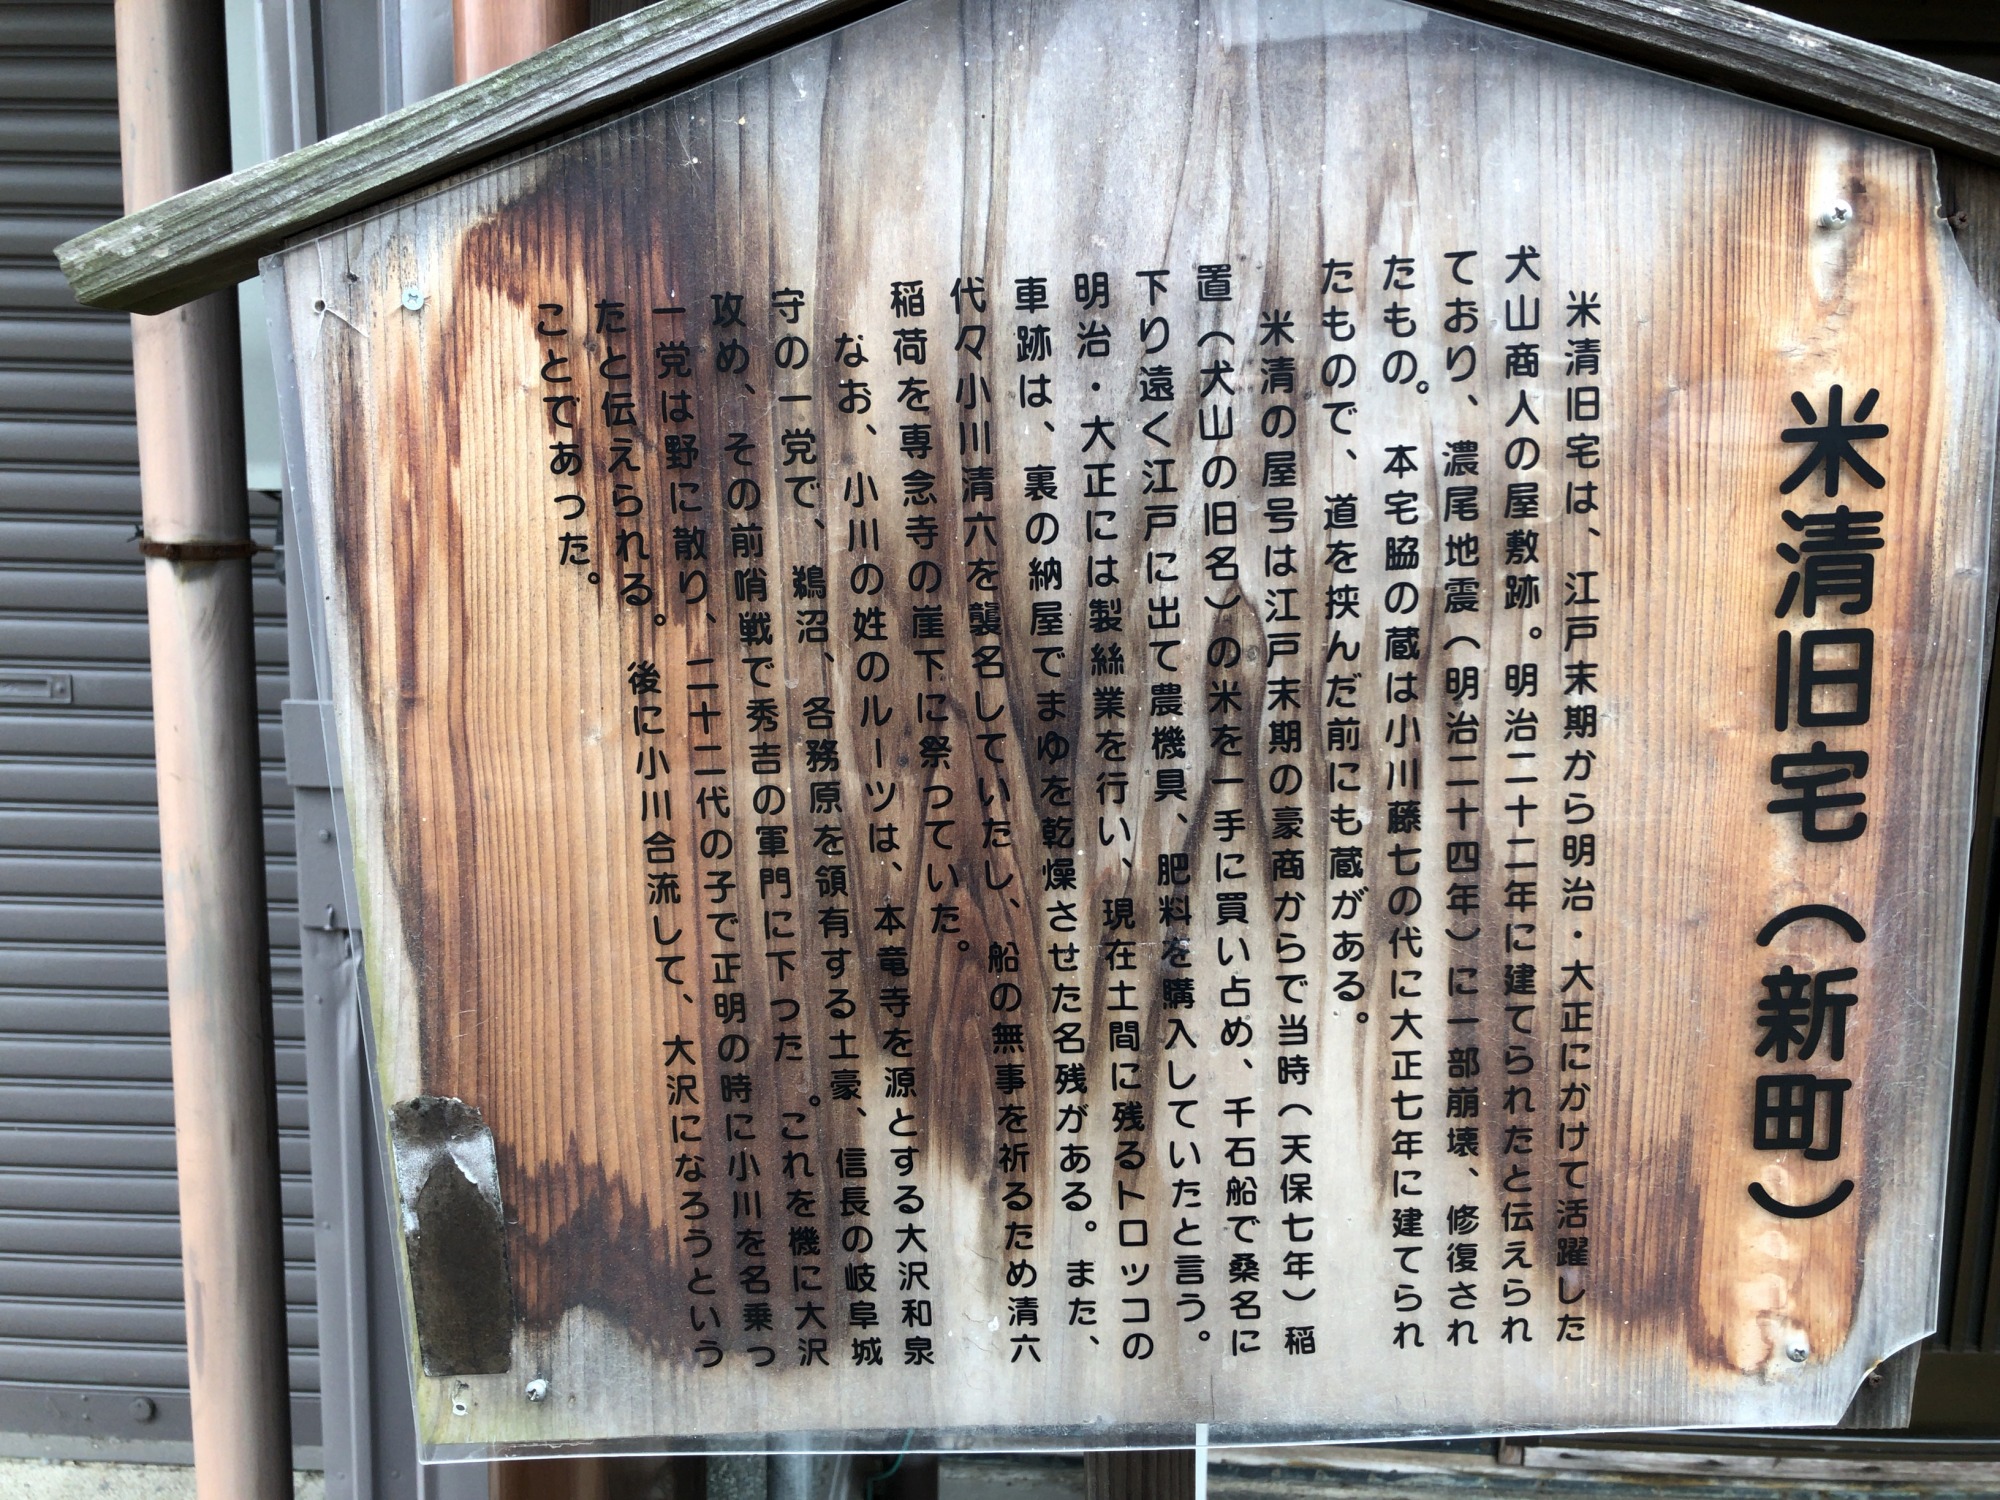 米清旧宅（新町）
米清旧宅は、江戸末期から明治・大正にかけて活躍した
犬山商人の屋敷跡。明治二十二年に建てられたと伝えられ
ており、濃尾地震（明治二十四年）に一部崩壊、修復され
たもの。本宅脇の蔵は小川藤七の代に大正七年に建てられ
たもので、道を挟んだ前にも蔵がある。
米清の屋号は江戸末期の豪商からで当時（天保七年）稲
置（犬山の旧名）の米を一手に買い占め、千石船で桑名に
下り遠く江戸に出て農機具、肥料を購入していたと言う。
明治・大正には製絲業を行い、現在土間に残るトロッコの
車跡は、裏の納屋でまゆを乾燥させた名残がある。また、
代々小川清六を襲名していたし、船の無事を祈るため清六
稲荷を専念寺の崖下に祭つていた。
なお、小川の姓のルーツは、本竜寺を源とする大沢和泉
守の一党で、鵜沼、各務原を領有する土豪、信長の岐阜城
攻め、その前哨戦で秀吉の軍門に下つた。これを機に大沢
一党は野に散り、二十二代の子で正明の時に小川を名乗つ
たと伝えられる。後に小川合流して、大沢になろうという
ことであった。